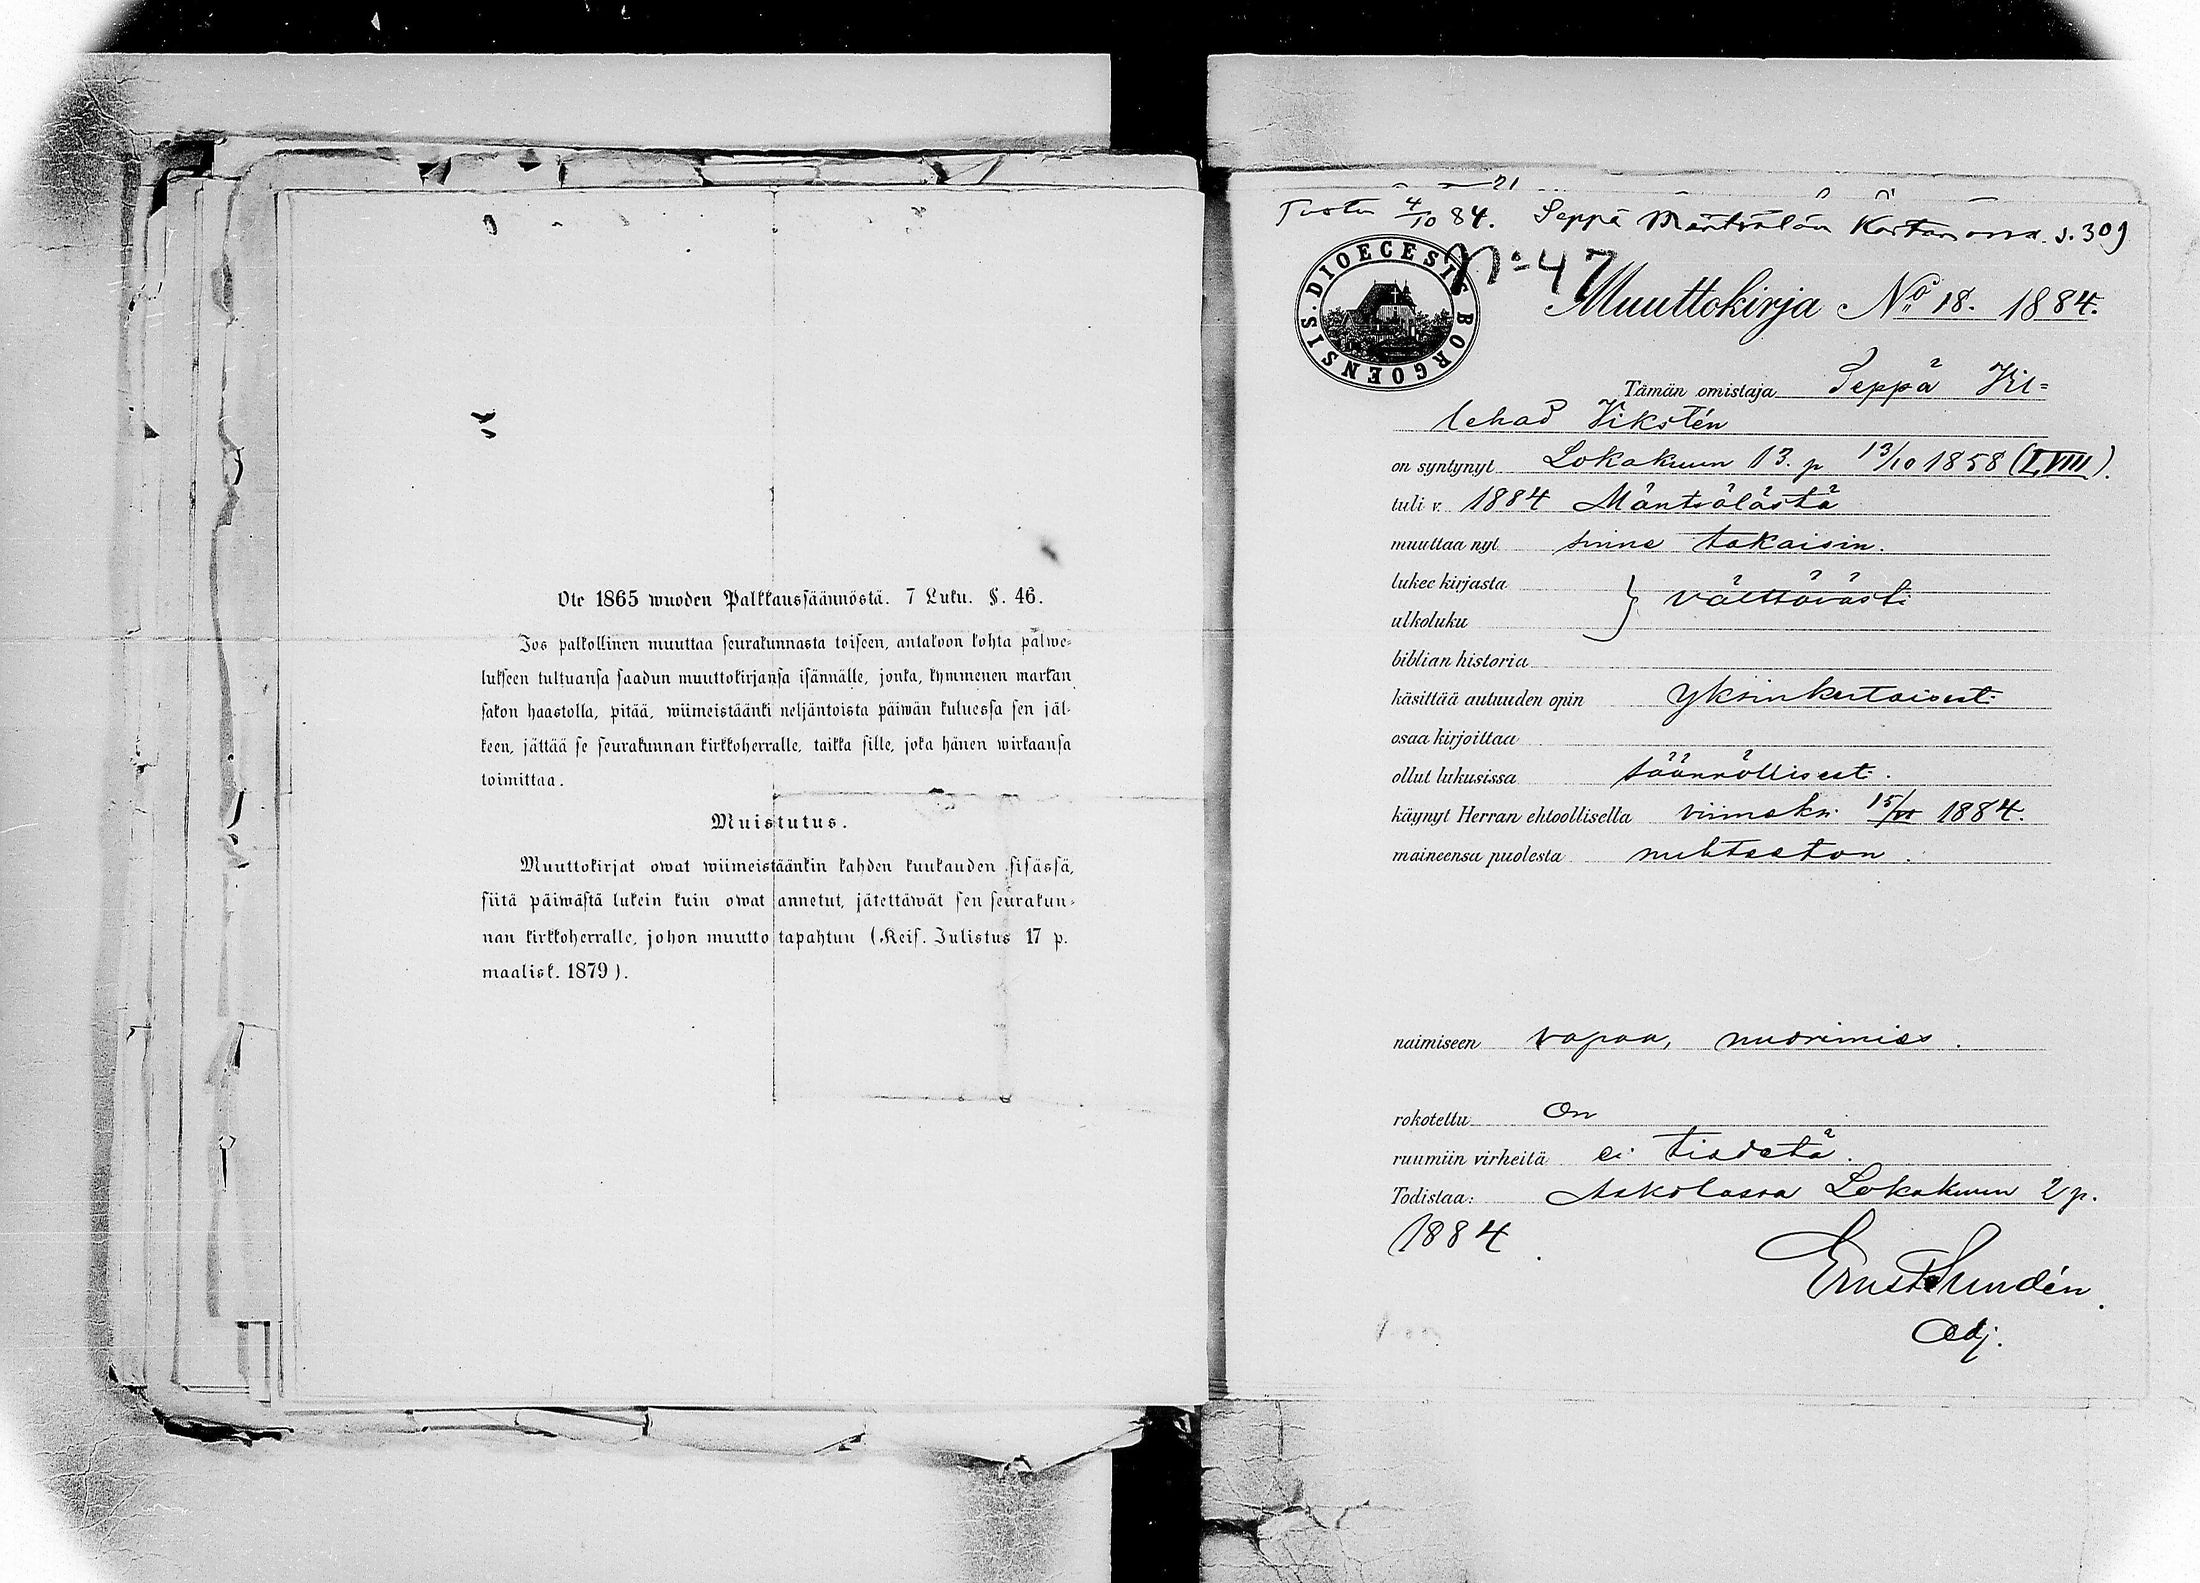 Ote 1865 wuoden Palkkaussäännöstä. 7 Luku. §. 46.
Jos palkollinen muuttaa seurakunnasta toiseen, antakoon kohta palwe-
lukseen tultuansa saadun muuttokirjansa isännälle, jonka, kymmenen markan
sakon haastolla, pitää, wiimeistäänki neljäntoista päiwän kuluessa sen jäl-
keen, jättää se seurakunnan kirkkoherralle, taikka sille, joka hänen wirkaansa
toimittaa.
Muistutus.
Muuttokirjat owat wiimeistäänkin kahden kuukauden sisässä,
siitä päiwästä lukein kuin owat annetut, jätettäwät sen seurakun-
nan kirkkoherralle, johon muutto tapahtuu (Keis. Julistus 17 p.
maalisk. 1879).
21
4/10 84. Seppä Mäntsälän Kartanossa s. 309
DIOECESIS BORGOENSIS.
No 47
Muuttokirja No 18. 1884.
Tämän omistaja Seppä Vil=
lehad Vikstén
on syntynyt Lokakuun 13. p 13/10 1858 (LVIII).
tuli v. 1884 Mäntsälästä
muuttaa nyt sinne takaisin.
lukee kirjasta } välttävästi
ulkoluku
biblian historia
käsittää autuuden opin yksinkertaisesti
osaa kirjoittaa
ollut lukusissa säännöllisesti.
käynyt Herran ehtoollisella viimeksi 15/VI 1884.
maineensa puolesta nuhteeton.
naimiseen vapaa, nuorimies.
rokotettu on
ruumiin virheitä ei tiedetä.
Todistaa: Askolassa Lokakuun 2 p.
1884.
Ernst Sundén.
Adj.